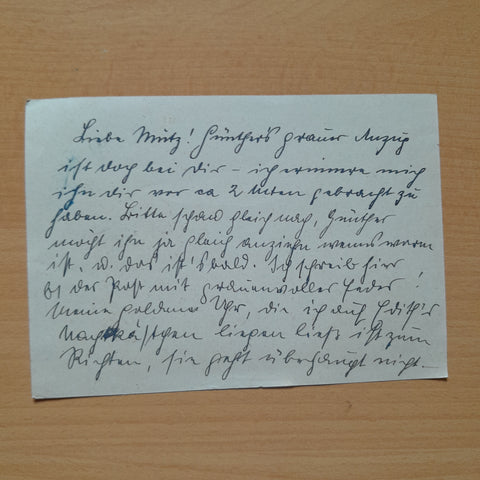 Liebe Mutz! Günther's grauer Anzug
ist doch bei Dir – ich erinnere mich
ihn Dir vor ca 2 Mten gebracht zu
haben. Bitte schau gleich nach, Günther
möcht ihn ja gleich anziehn wenns warm
ist, u. das ist's bald. Ich schreib hier
der Post mit grauenvoller Feder!
Meine goldene Uhr, die ich auf Edith's
Nachtkästchen liegen ließ ist zum
Richten, sie geht überhaupt nicht –